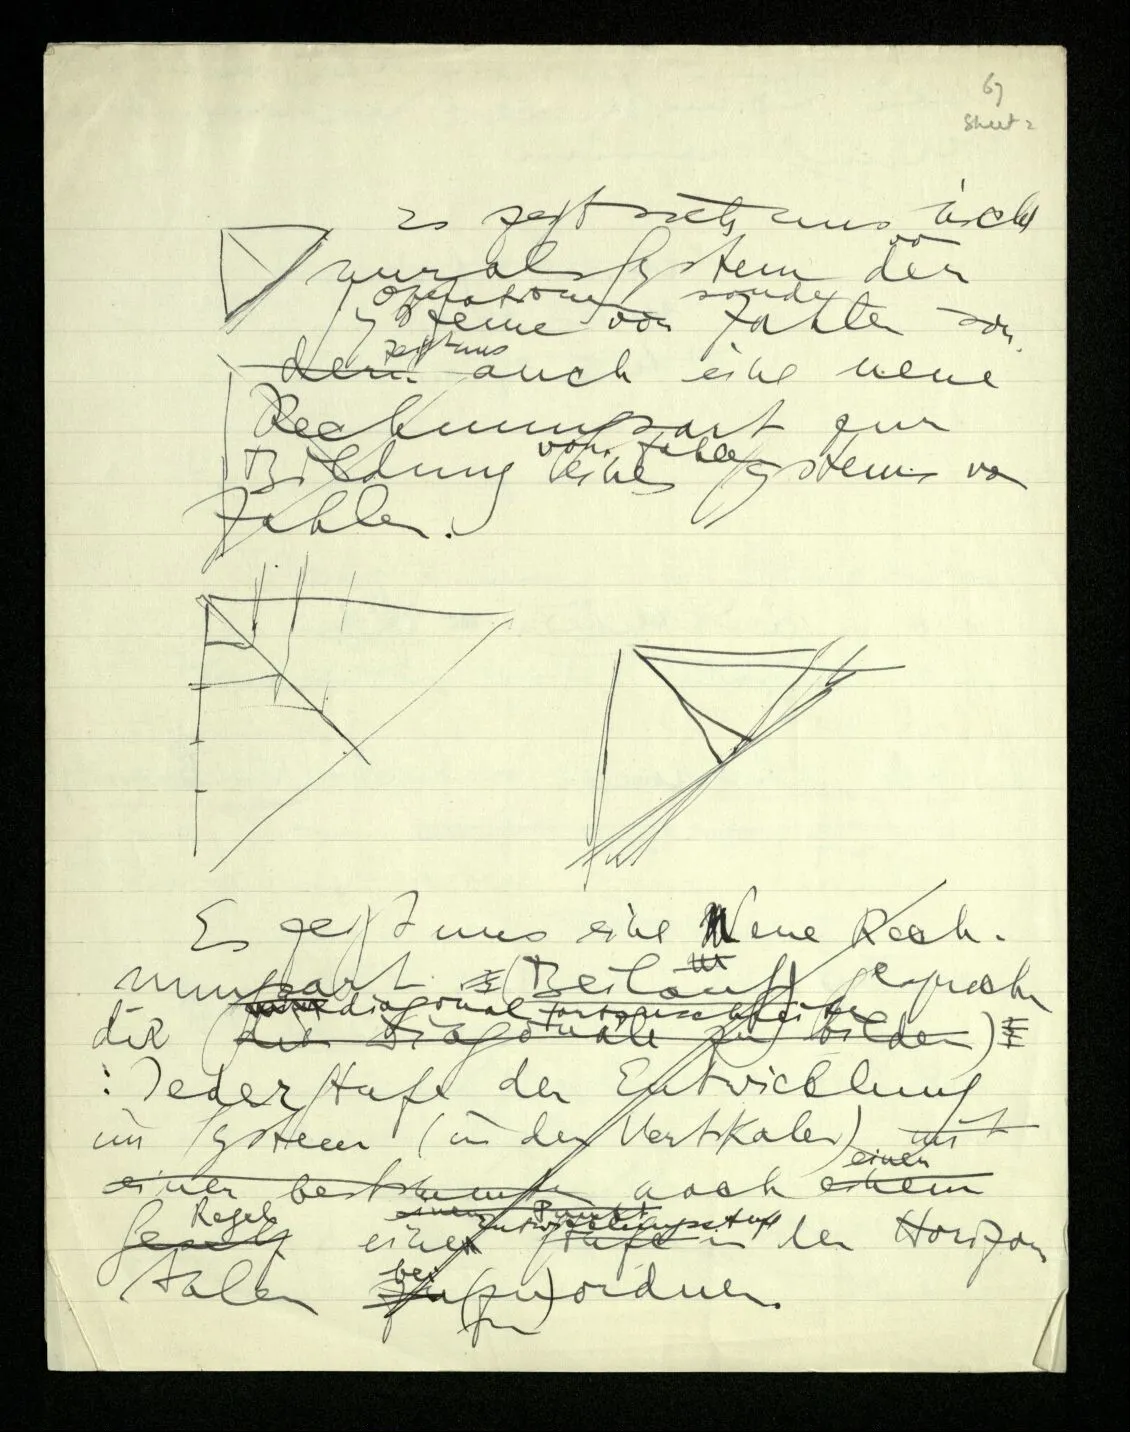 67
Sheet 2
Es zeigt sich uns nicht
nur als System der
Operationen sonder
Systeme von Zahlen son
zeigt uns
dern auch eine neue
Rechnungsart zur
von Zahlen
Bildung eines Systems von
Zahlen.
Es zeigt uns eine Neue Rech-
nungsart (Beiläufig gesprochen
diagonal fortzuschreiten
die (die Diagonale zu bilden)
: Jeder Stufe der Entwicklung
im System (in der Vertikalen) mit
einen
einer bestimmten nach einem
einen Punkt
Regel Entwicklungsstufe
Gesetz einer Stufe in der Horizon
talen
bei
zu(zu)ordnen.
zu